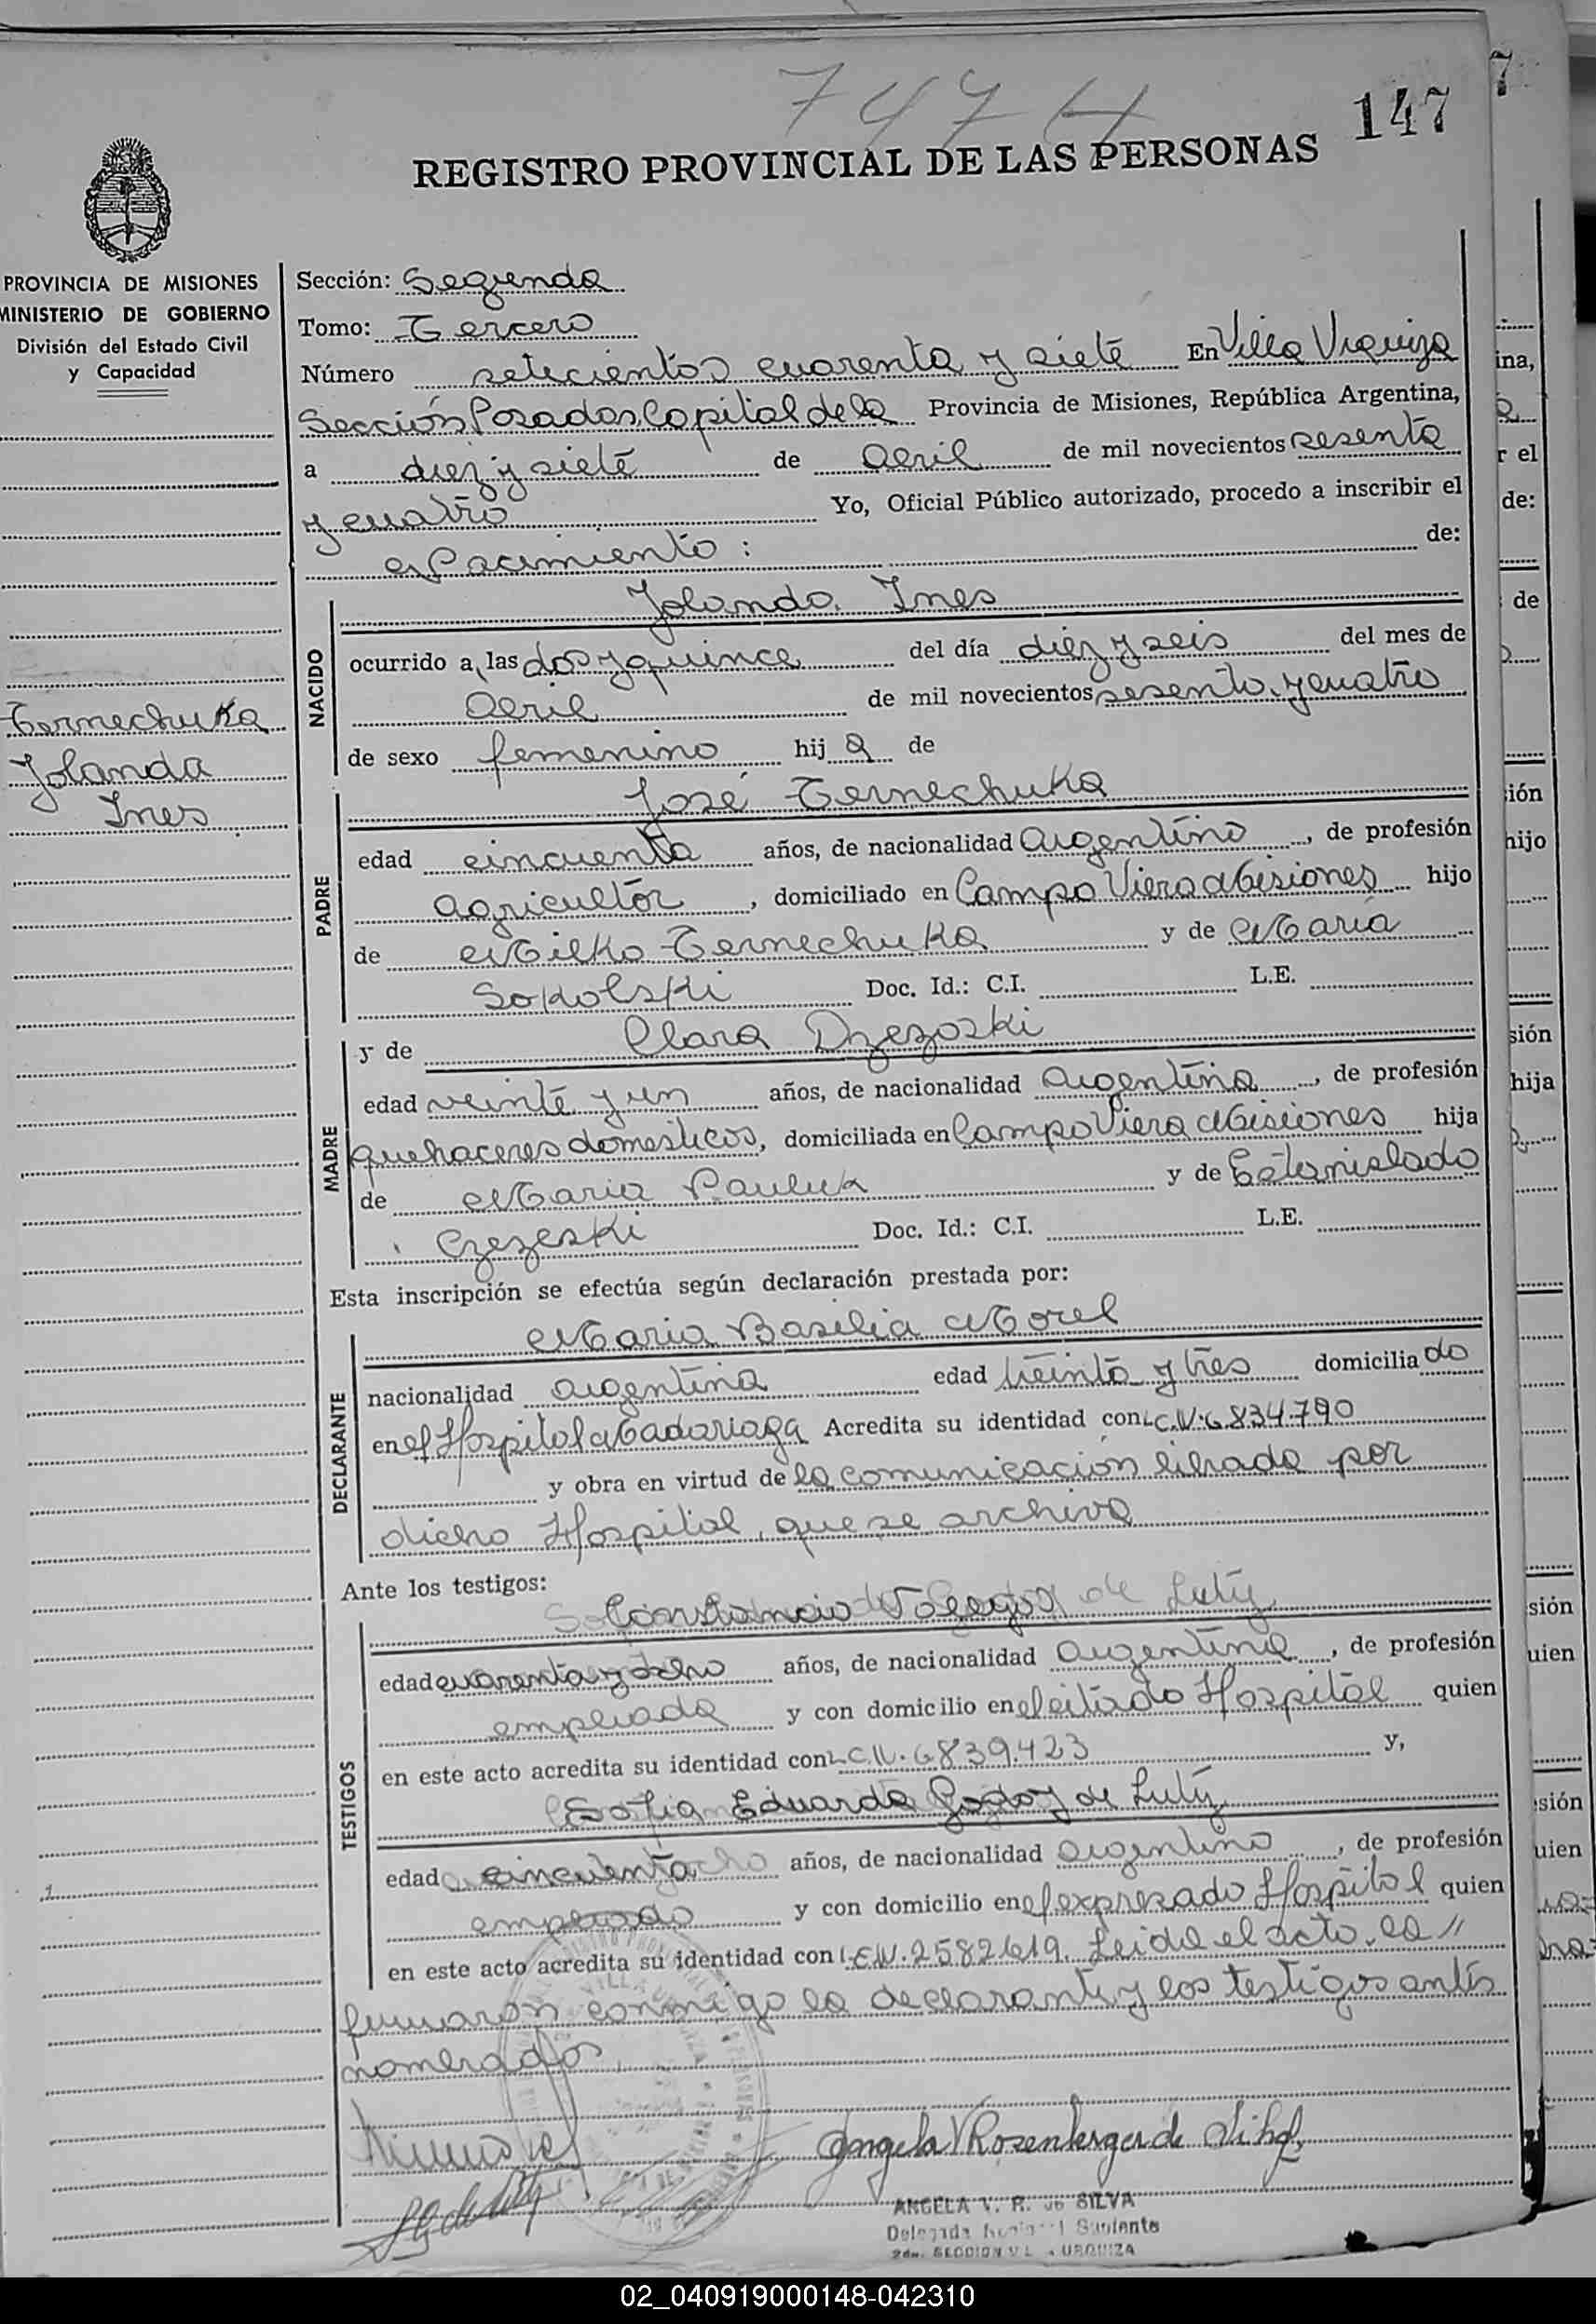 747
147
REGISTRO PROVINCIAL DE LAS PERSONAS
PROVINCIA DE MISIONES
MINISTERIO DE GOBIERNO
División del Estado Civil
y Capacidad
Ternechuka
Jolanda
Ines
Sección: Segunda
Tomo: Tercero
Número setecientos cuarenta y siete En Villa Urquiza
Sección Posadas, Capital de la Provincia de Misiones, República Argentina,
a diez y siete de Abril de mil novecientos sesenta
y cuatro Yo, Oficial Público autorizado, procedo a inscribir el
Nacimiento: de:
NACIDO
Jolanda Ines
ocurrido a las dos y quince del día diez y seis del mes de
Abril de mil novecientos sesenta y cuatro
de sexo femenino hija de
PADRE
José Ternechuka
edad cincuenta años, de nacionalidad argentino, de profesión
agricultor, domiciliado en Campo Viera Misiones hijo
de Milko Ternechuka y de María
Sokolski Doc. Id.: C.I. L.E.
MADRE
y de Clara Dzezoski
edad veinte y un años, de nacionalidad argentina, de profesión
quehaceres domesticos, domiciliada en Campo Viera Misiones hija
de Maria Pauluk y de Estanislado
Czezeski Doc. Id.: C.I. L.E.
Esta inscripción se efectúa según declaración prestada por:
DECLARANTE
Maria Basilia Morel
nacionalidad argentina edad treinta y tres domiciliado
en el Hospital Madariaga Acredita su identidad con L.C.N. 6.834.790
y obra en virtud de la comunicación librada por
dicho Hospital, que se archiva
Ante los testigos:
TESTIGOS
de Luty
edad cuarenta y ocho años, de nacionalidad argentina, de profesión
empleada y con domicilio en el citado Hospital quien
en este acto acredita su identidad con L.C.N. 6.839.423 y,
Sofia Eduarda Godoy de Luty
edad cincuenta años, de nacionalidad argentino, de profesión
empleado y con domicilio en el expresado Hospital quien
en este acto acredita su identidad con L.E.N. 2582619. Leida el acta, la
firmaron conmigo la declarante y los testigos antes
nombrados.
Angela V Rosenberger de Silva
ANGELA V. R. de SILVA
Delegada Suplente
2da. SECCION URQUIZA
02_040919000148-042310